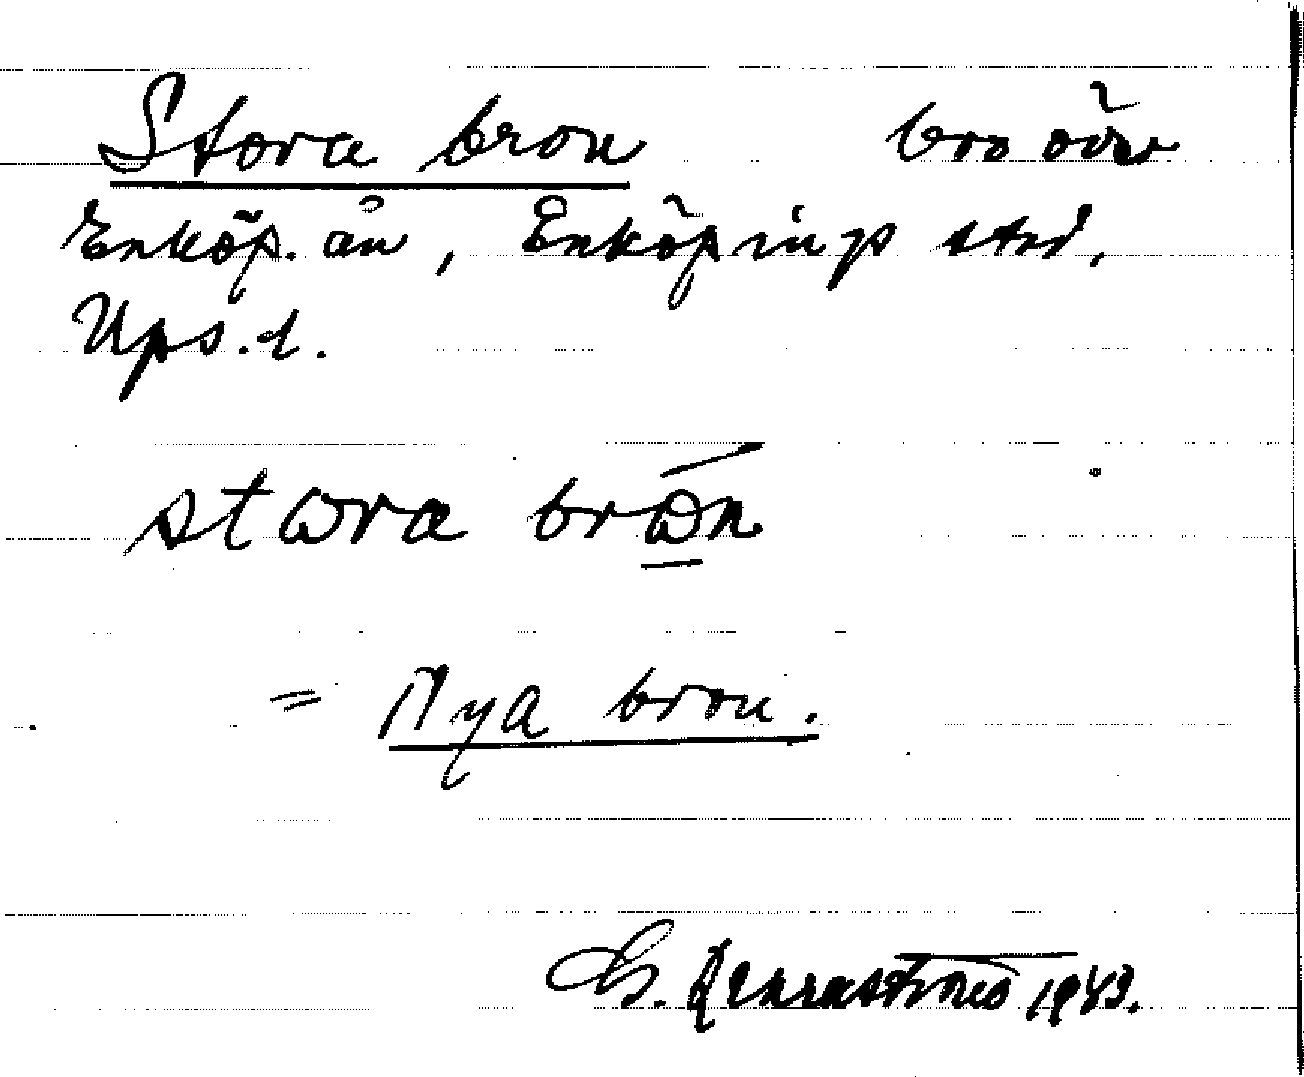 Stora bron bro över
Enköp. ån, Enköpings stad,
Ups. l.
stωra brώn
= Nya bron.
1943.